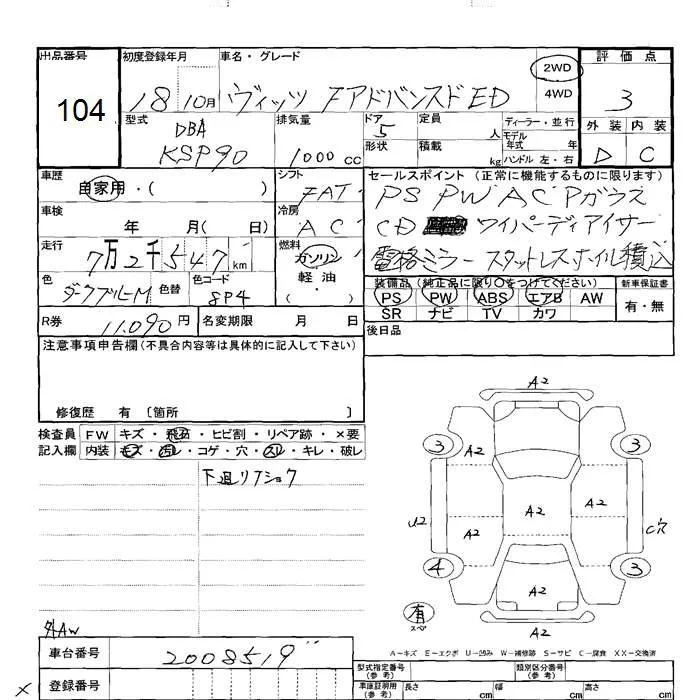 出品番号 104
初度登録年月 18 10月
車名・グレード ヴィッツ FアドバンスドED
2WD
4WD
評価点 3
外装 内装
D C
型式 DBA
KSP90
排気量 1000 cc
ドア 5
形状
定員 人
積載 kg
ディーラー・並行
モデル年式 年
ハンドル 左・右
車歴 自家用・( )
シフト FAT
セールスポイント (正常に機能するものに限ります)
PS PW AC Pガラス
CD ワイパーディアイサー
電格ミラー スタットレスホイル積込
車検 年 月( 日)
冷房 AC
走行 7万2千547 km
燃料 ガソリン
軽油
( )
色 ダークブルーM
色替
色コード 8P4
装備品 (純正品に限り○をつけてください)
PS PW ABS エアB AW
SR ナビ TV カワ
新車保証書
有・無
R券 11,090円
名変期限 月 日
後日品
注意事項申告欄(不具合内容等は具体的に記入して下さい)
修復歴 有 〔箇所 〕
検査員記入欄
FW キズ・飛石・ヒビ割・リペア跡・×要
内装 キズ・汚レ・コゲ・穴・スレ・キレ・破レ
下廻リ
A2
3 3
A2
A2
U2 A2 A2 C穴
4 3
A2
有
スペア
A2
A-キズ E-エクボ U-凹み W-補修跡 S-サビ C-腐食 XX-交換済
外AW
車台番号 2008519
× 登録番号
型式指定番号(参考)
類別区分番号(参考)
車庫証明用(参考) 長さ cm 幅 cm 高さ cm